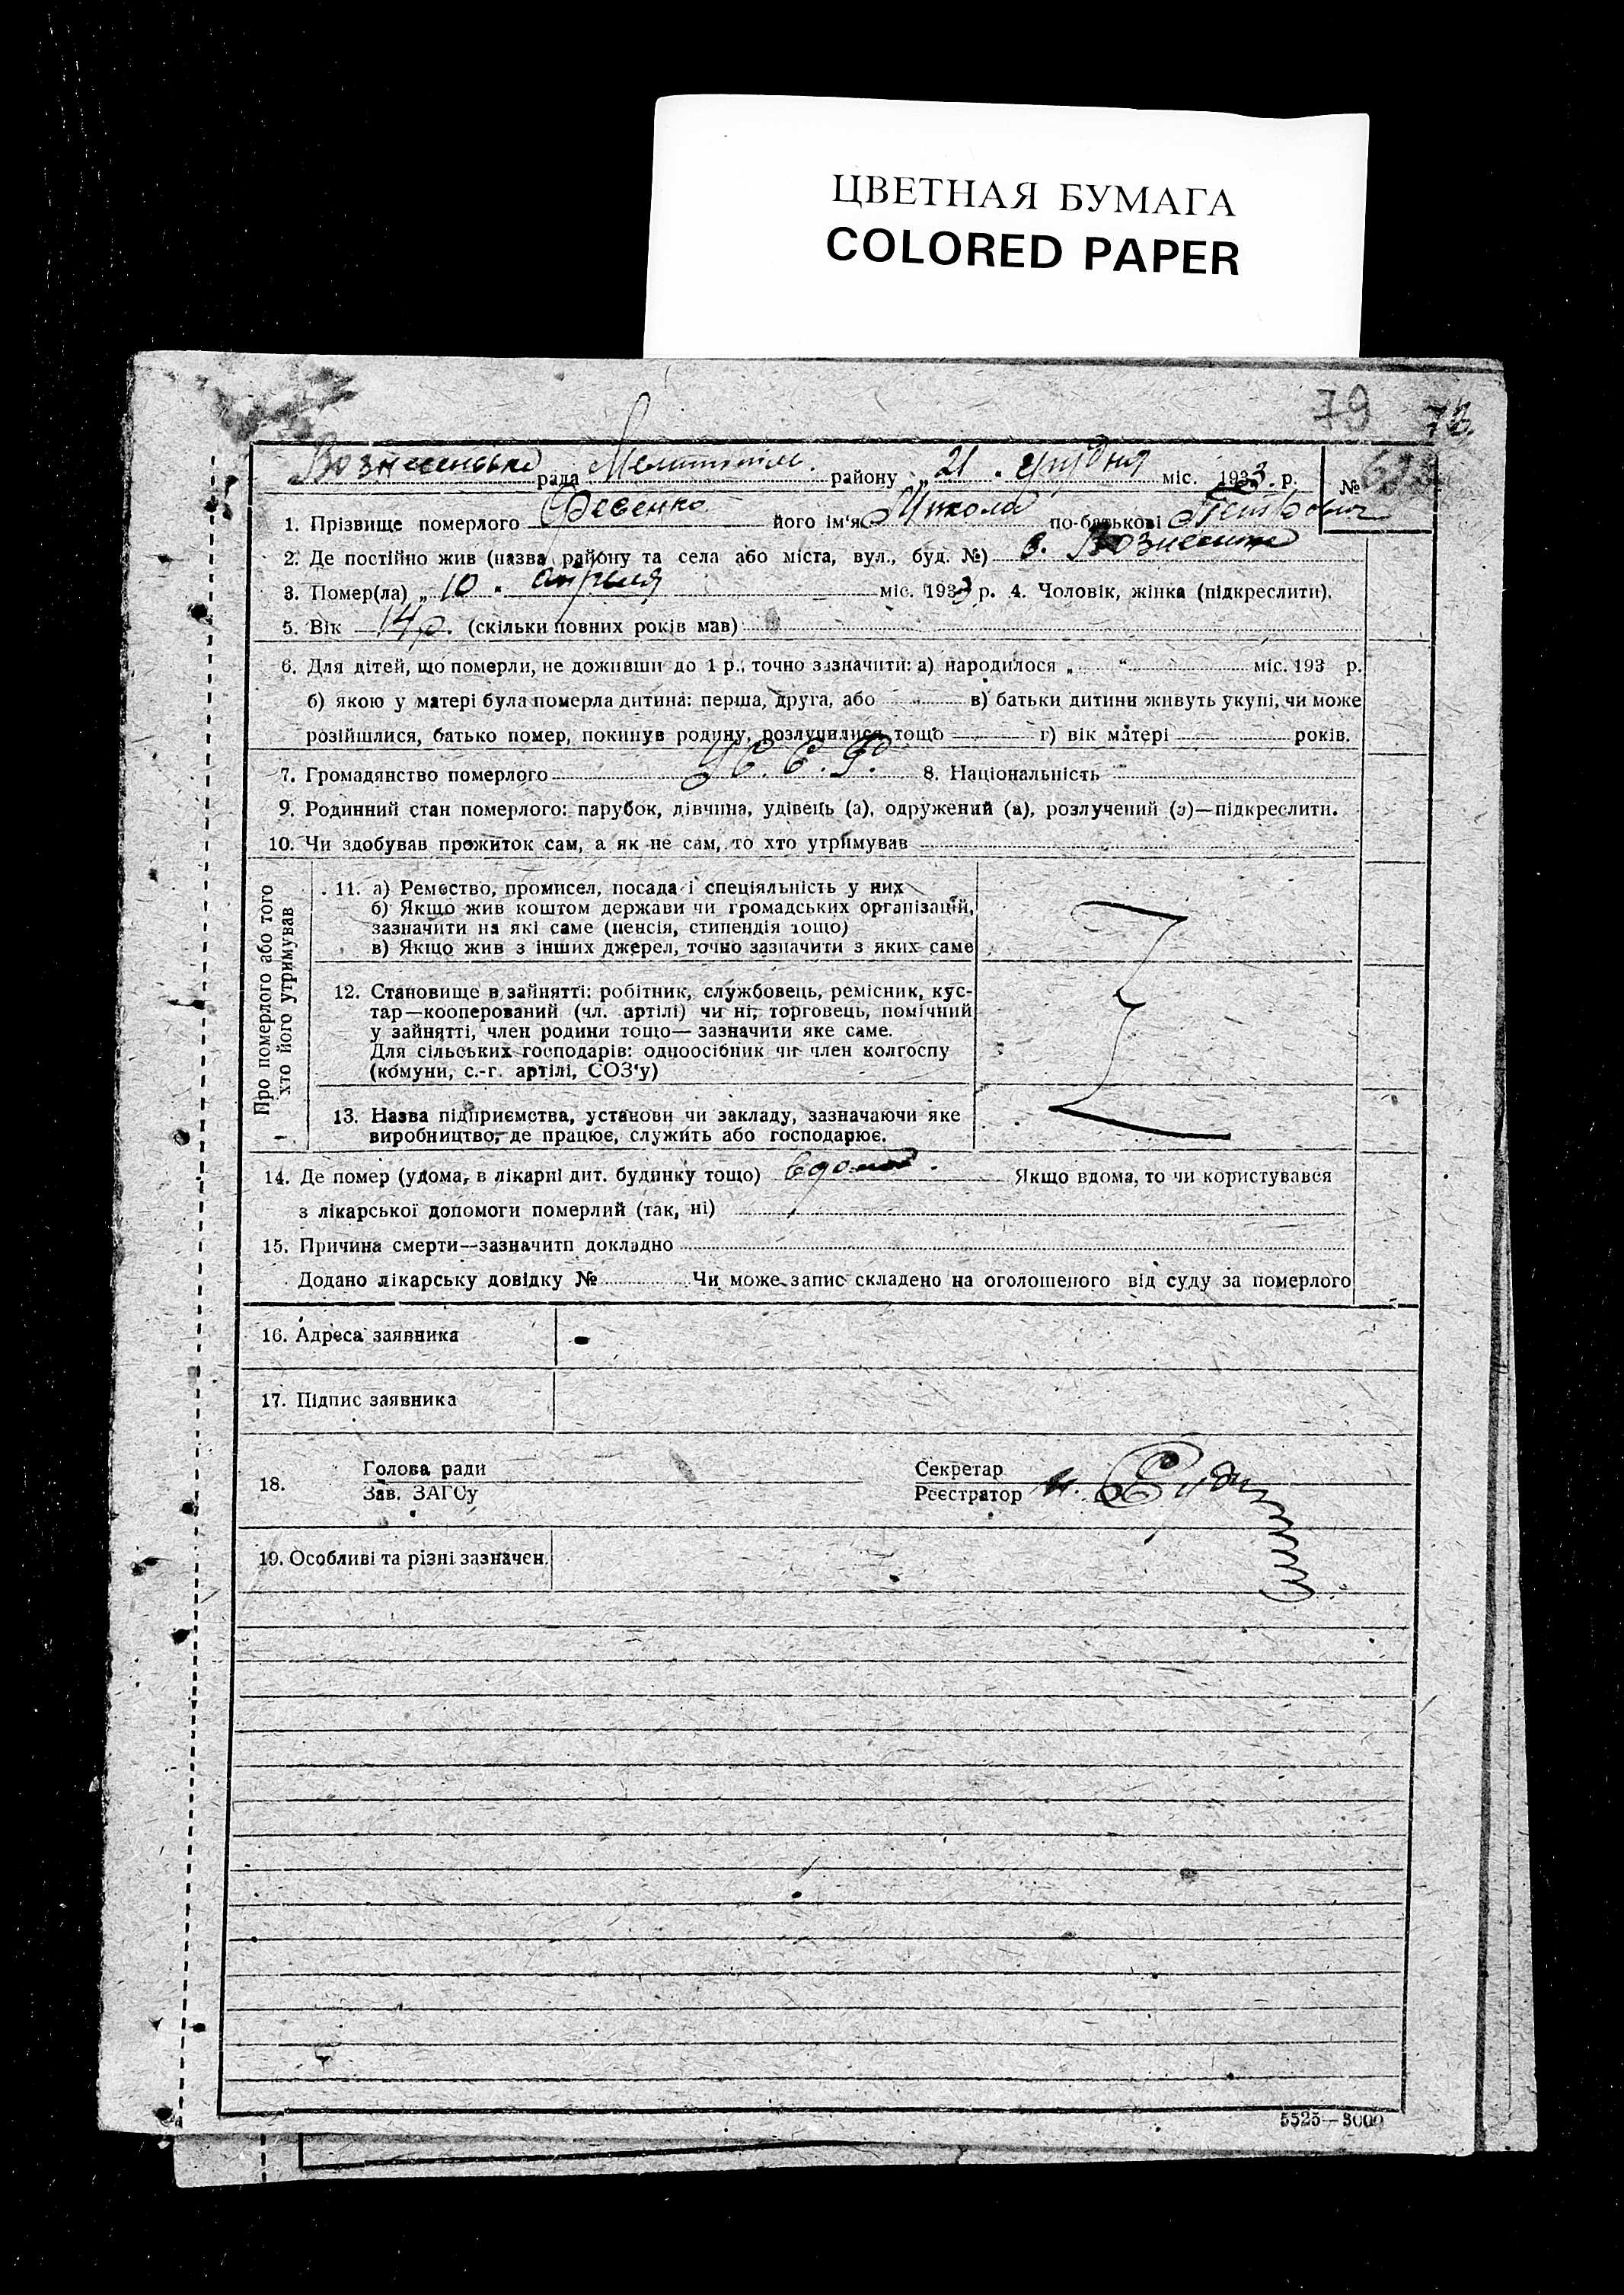 ЦВЕТНАЯ БУМАГА
COLORED PAPER
79
Вознесенська рада Мелитопіл. району „ 21 " грудня міс. 1933 р. №
1. Прізвище померлого його ім'я Микола по-батькові Петрович
2. Де постійно жив (назва району та села або міста, вул., буд. №) с. Вознесенка
3. Помер(ла) „ 10 " апреля міс. 1933 р. 4. Чоловік, жінка (підкреслити).
5. Вік 14 р. (скільки повних років мав)
6. Для дітей, що померли, не доживши до 1 р., точно зазначити: а) народилося „ " міс. 193 р.
б) якою у матері була померла дитина: перша, друга, або в) батьки дитини живуть укупі, чи може
розійшлися, батько помер, покинув родину, розлучилися тощо г) вік матері років.
7. Громадянство померлого У.С.С.Р. 8. Національність
9. Родинний стан померлого: парубок, дівчина, удівець (а), одружений (а), розлучений (а)—підкреслити.
10. Чи здобував прожиток сам, а як не сам, то хто утримував
Про померлого або того
хто його утримував
11. а) Ремество, промисел, посада і спеціяльність у них
б) Якщо жив коштом держави чи громадських організацій,
зазначити на які саме (пенсія, стипендія тощо)
в) Якщо жив з інших джерел, точно зазначити з яких саме
12. Становище в зайнятті: робітник, службовець, ремісник, кус-
тар—кооперований (чл. артілі) чи ні, торговець, помічний
у зайнятті, член родини тощо— зазначити яке саме.
Для сільських господарів: одноосібник чи член колгоспу
(комуни, с.-г. артілі, СОЗ'у)
13. Назва підприємства, установи чи закладу, зазначаючи яке
виробництво, де працює, служить або господарює.
14. Де помер (удома, в лікарні дит. будинку тощо) вдома. Якщо вдома, то чи користувався
з лікарської допомоги померлий (так, ні)
15. Причина смерти—зазначити докладно
Додано лікарську довідку № Чи може запис складено на оголошеного від суду за померлого
16. Адреса заявника
17. Підпис заявника
18. Голова ради Секретар
Зав. ЗАГСу Реєстратор
19. Особливі та різні зазначен.
5525—3000